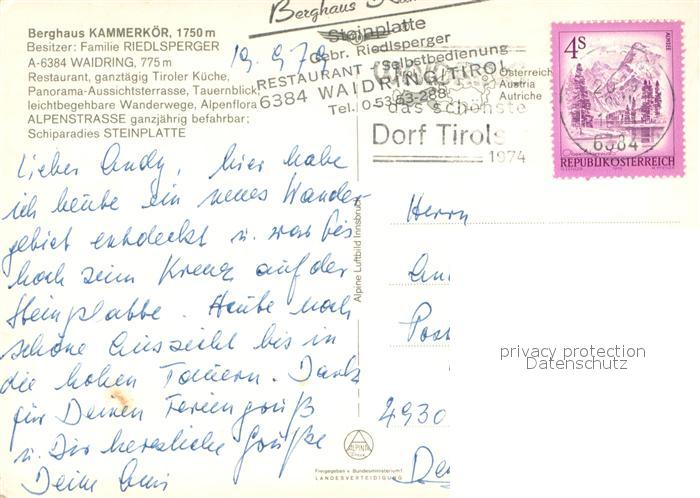 Berghaus KAMMERKÖR, 1750 m
Besitzer: Familie RIEDLSPERGER
A-6384 WAIDRING, 775 m
Restaurant, ganztägig Tiroler Küche,
Panorama-Aussichtsterrasse, Tauernblick,
leichtbegehbare Wanderwege, Alpenflora
ALPENSTRASSE ganzjährig befahrbar;
Schiparadies STEINPLATTE
Berghaus
Steinplatte
Gebr. Riedlsperger
RESTAURANT - Selbstbedienung
6384 WAIDRING/TIROL
Tel. 05353-288
das schönste
Dorf Tirols
1974
Österreich
Austria
Autriche
4S
6384
REPUBLIK ÖSTERREICH
19.9.79
Lieber Andy, hier habe
ich heute ein neues Wander-
gebiet entdeckt u. war bis
hoch zum Kreuz auf der
Steinplatte. Heute noch
schöne Aussicht bis in
die hohen Tauern. Dank
für Deinen Feriengruß
u. Dir herzliche Grüße
Deine
Alpine Luftbild Innsbruck
Herrn
An
Post
4930
De
privacy protection
Datenschutz
ALPINE
Freigegeben v. Bundesministerium f.
LANDESVERTEIDIGUNG